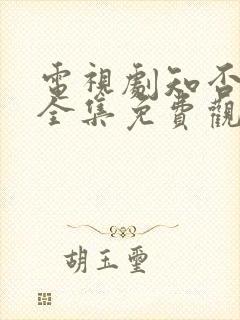 電視劇知否
全集免費觀
胡玉璽